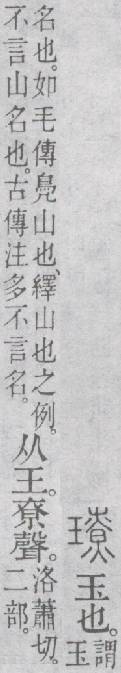 璙玉也。謂
玉
名也。如毛傳鳧山也、繹山也之例。
不言山名也。古傳注多不言名。
从王。尞聲。
洛蕭切。
二部。